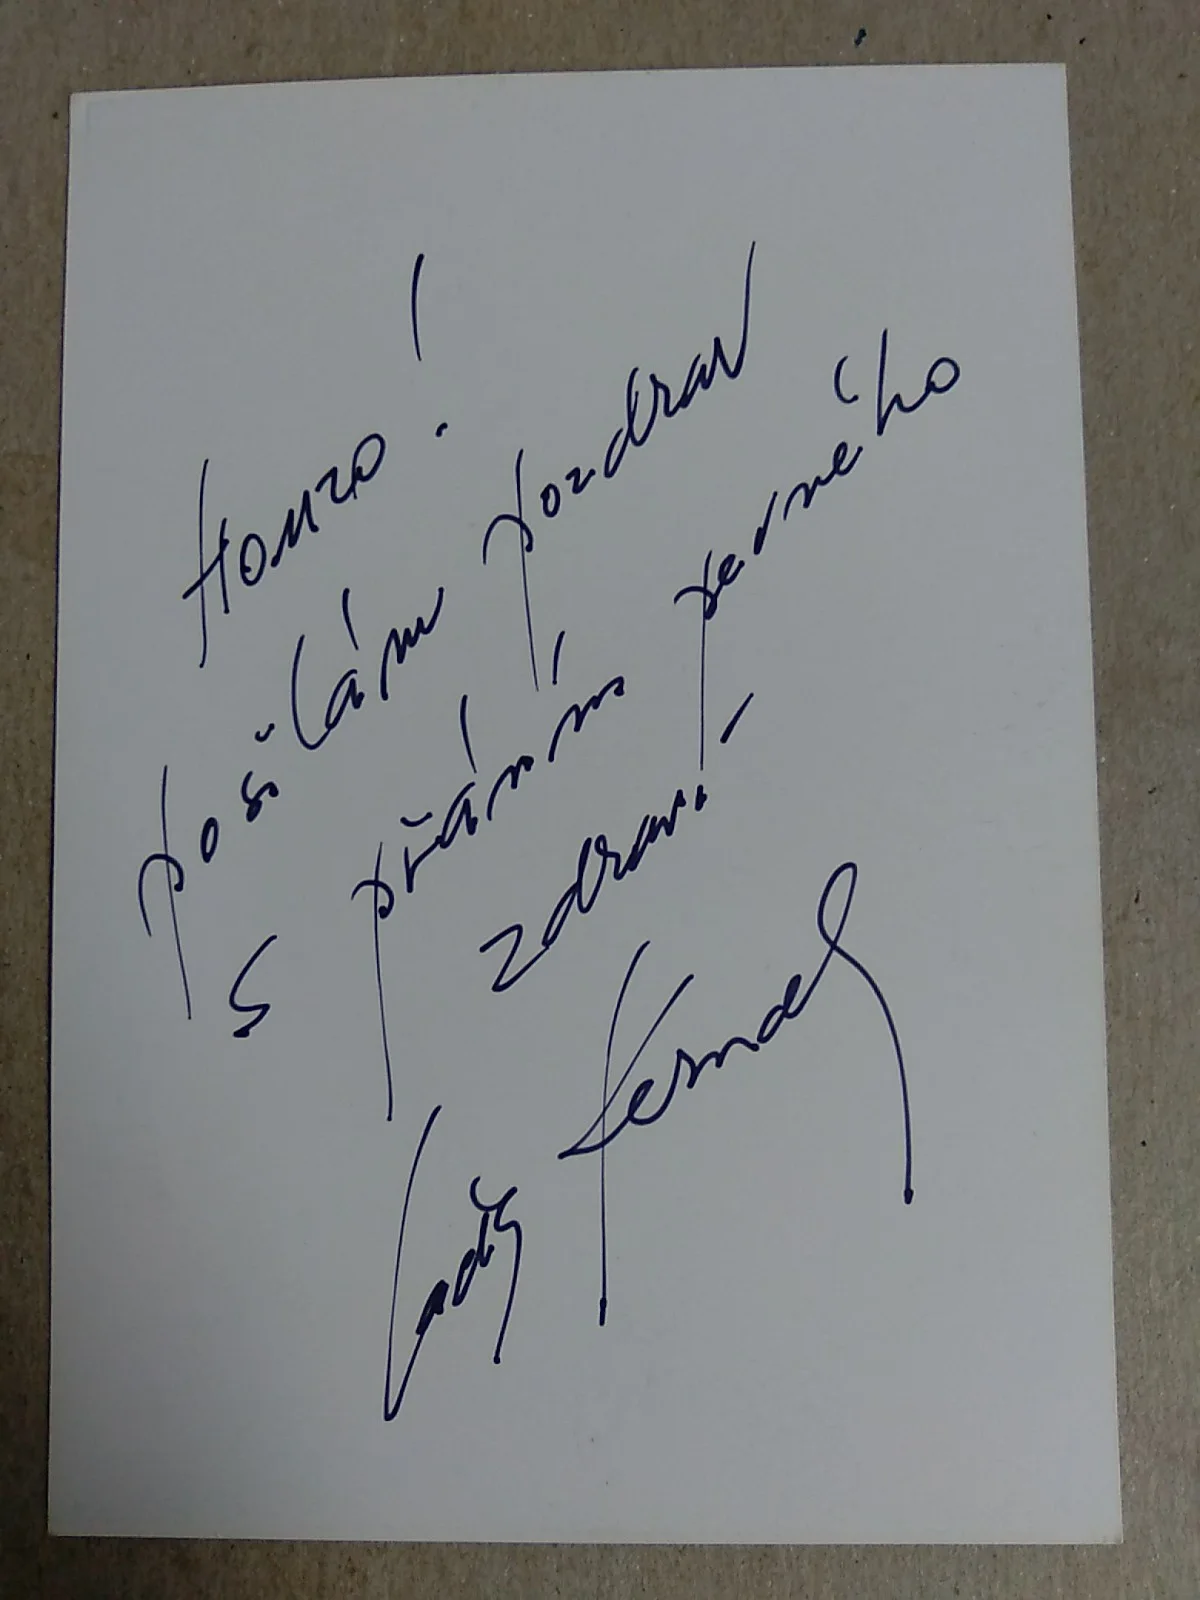 Honzo!
posílám pozdrav
s přáním pevného
zdraví
Laďa Kerndl